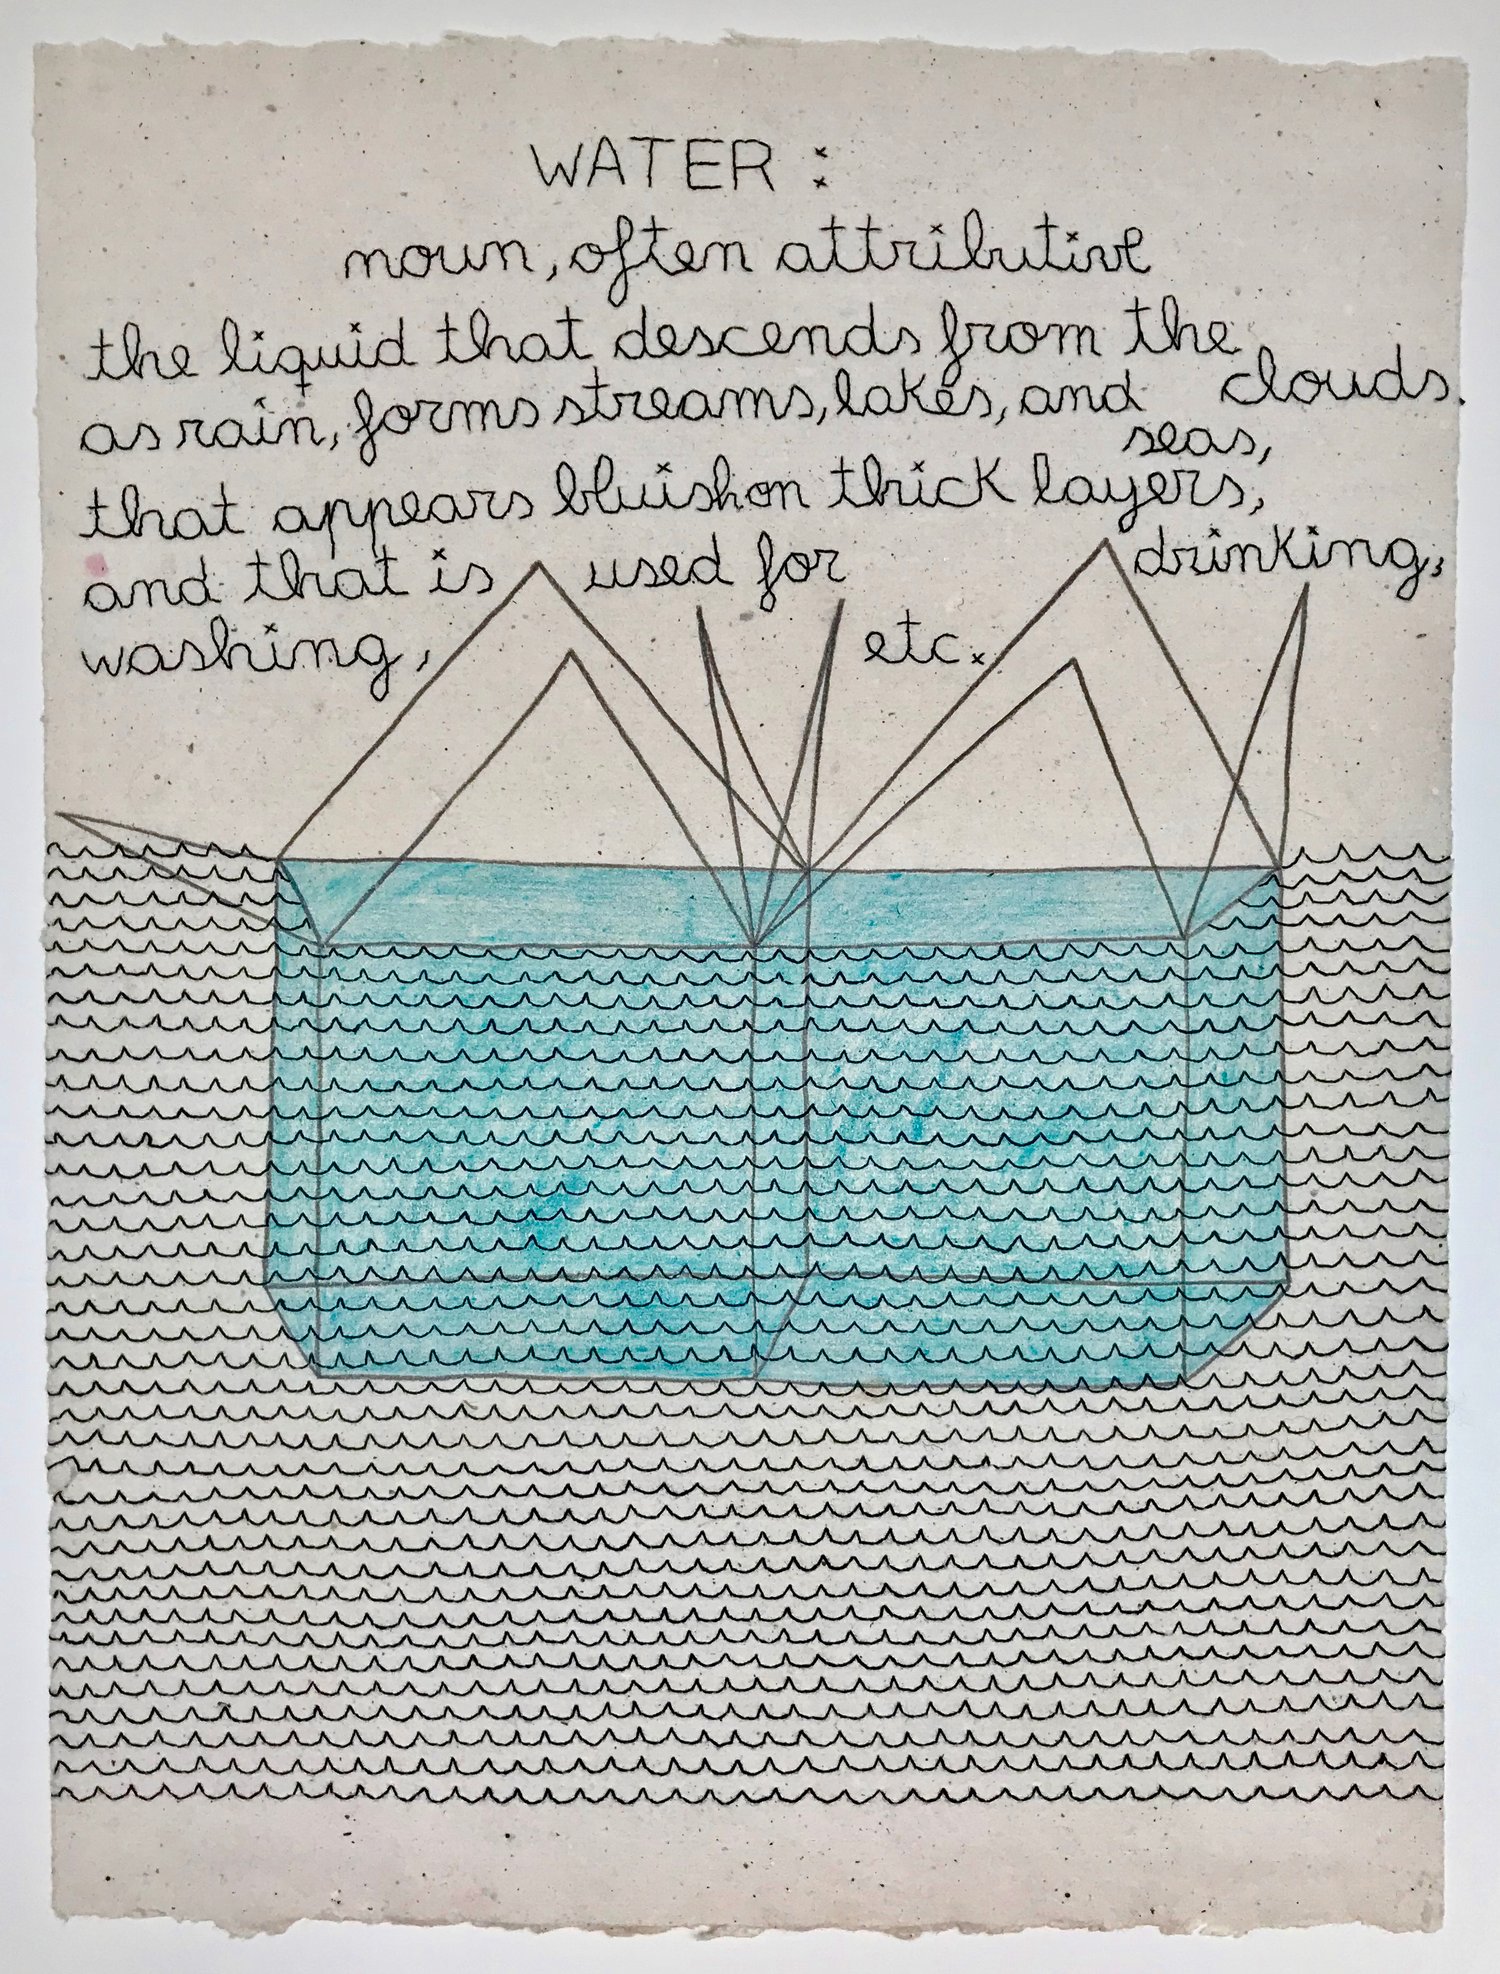 WATER :
noun, often attributive
the liquid that descends from the clouds.
as rain, forms streams, lakes, and seas,
that appears bluish on thick layers,
and that is used for drinking,
washing, etc.